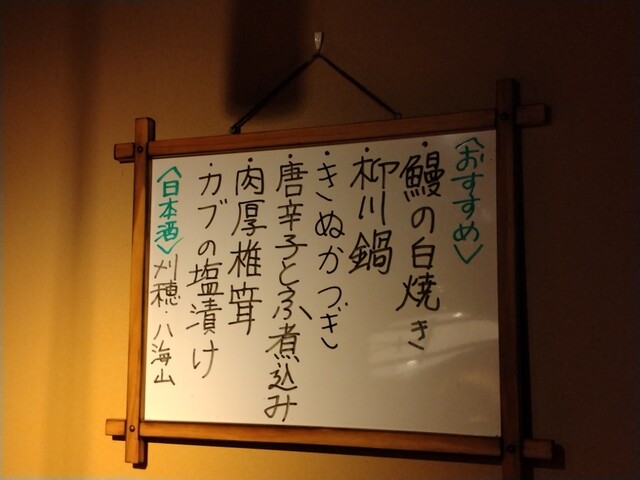 〈おすすめ〉
・鰻の白焼き
・柳川鍋
・きぬかつぎ
・唐辛子とふ煮込み
・肉厚椎茸
・カブの塩漬け
〈日本酒〉刈穂・八海山